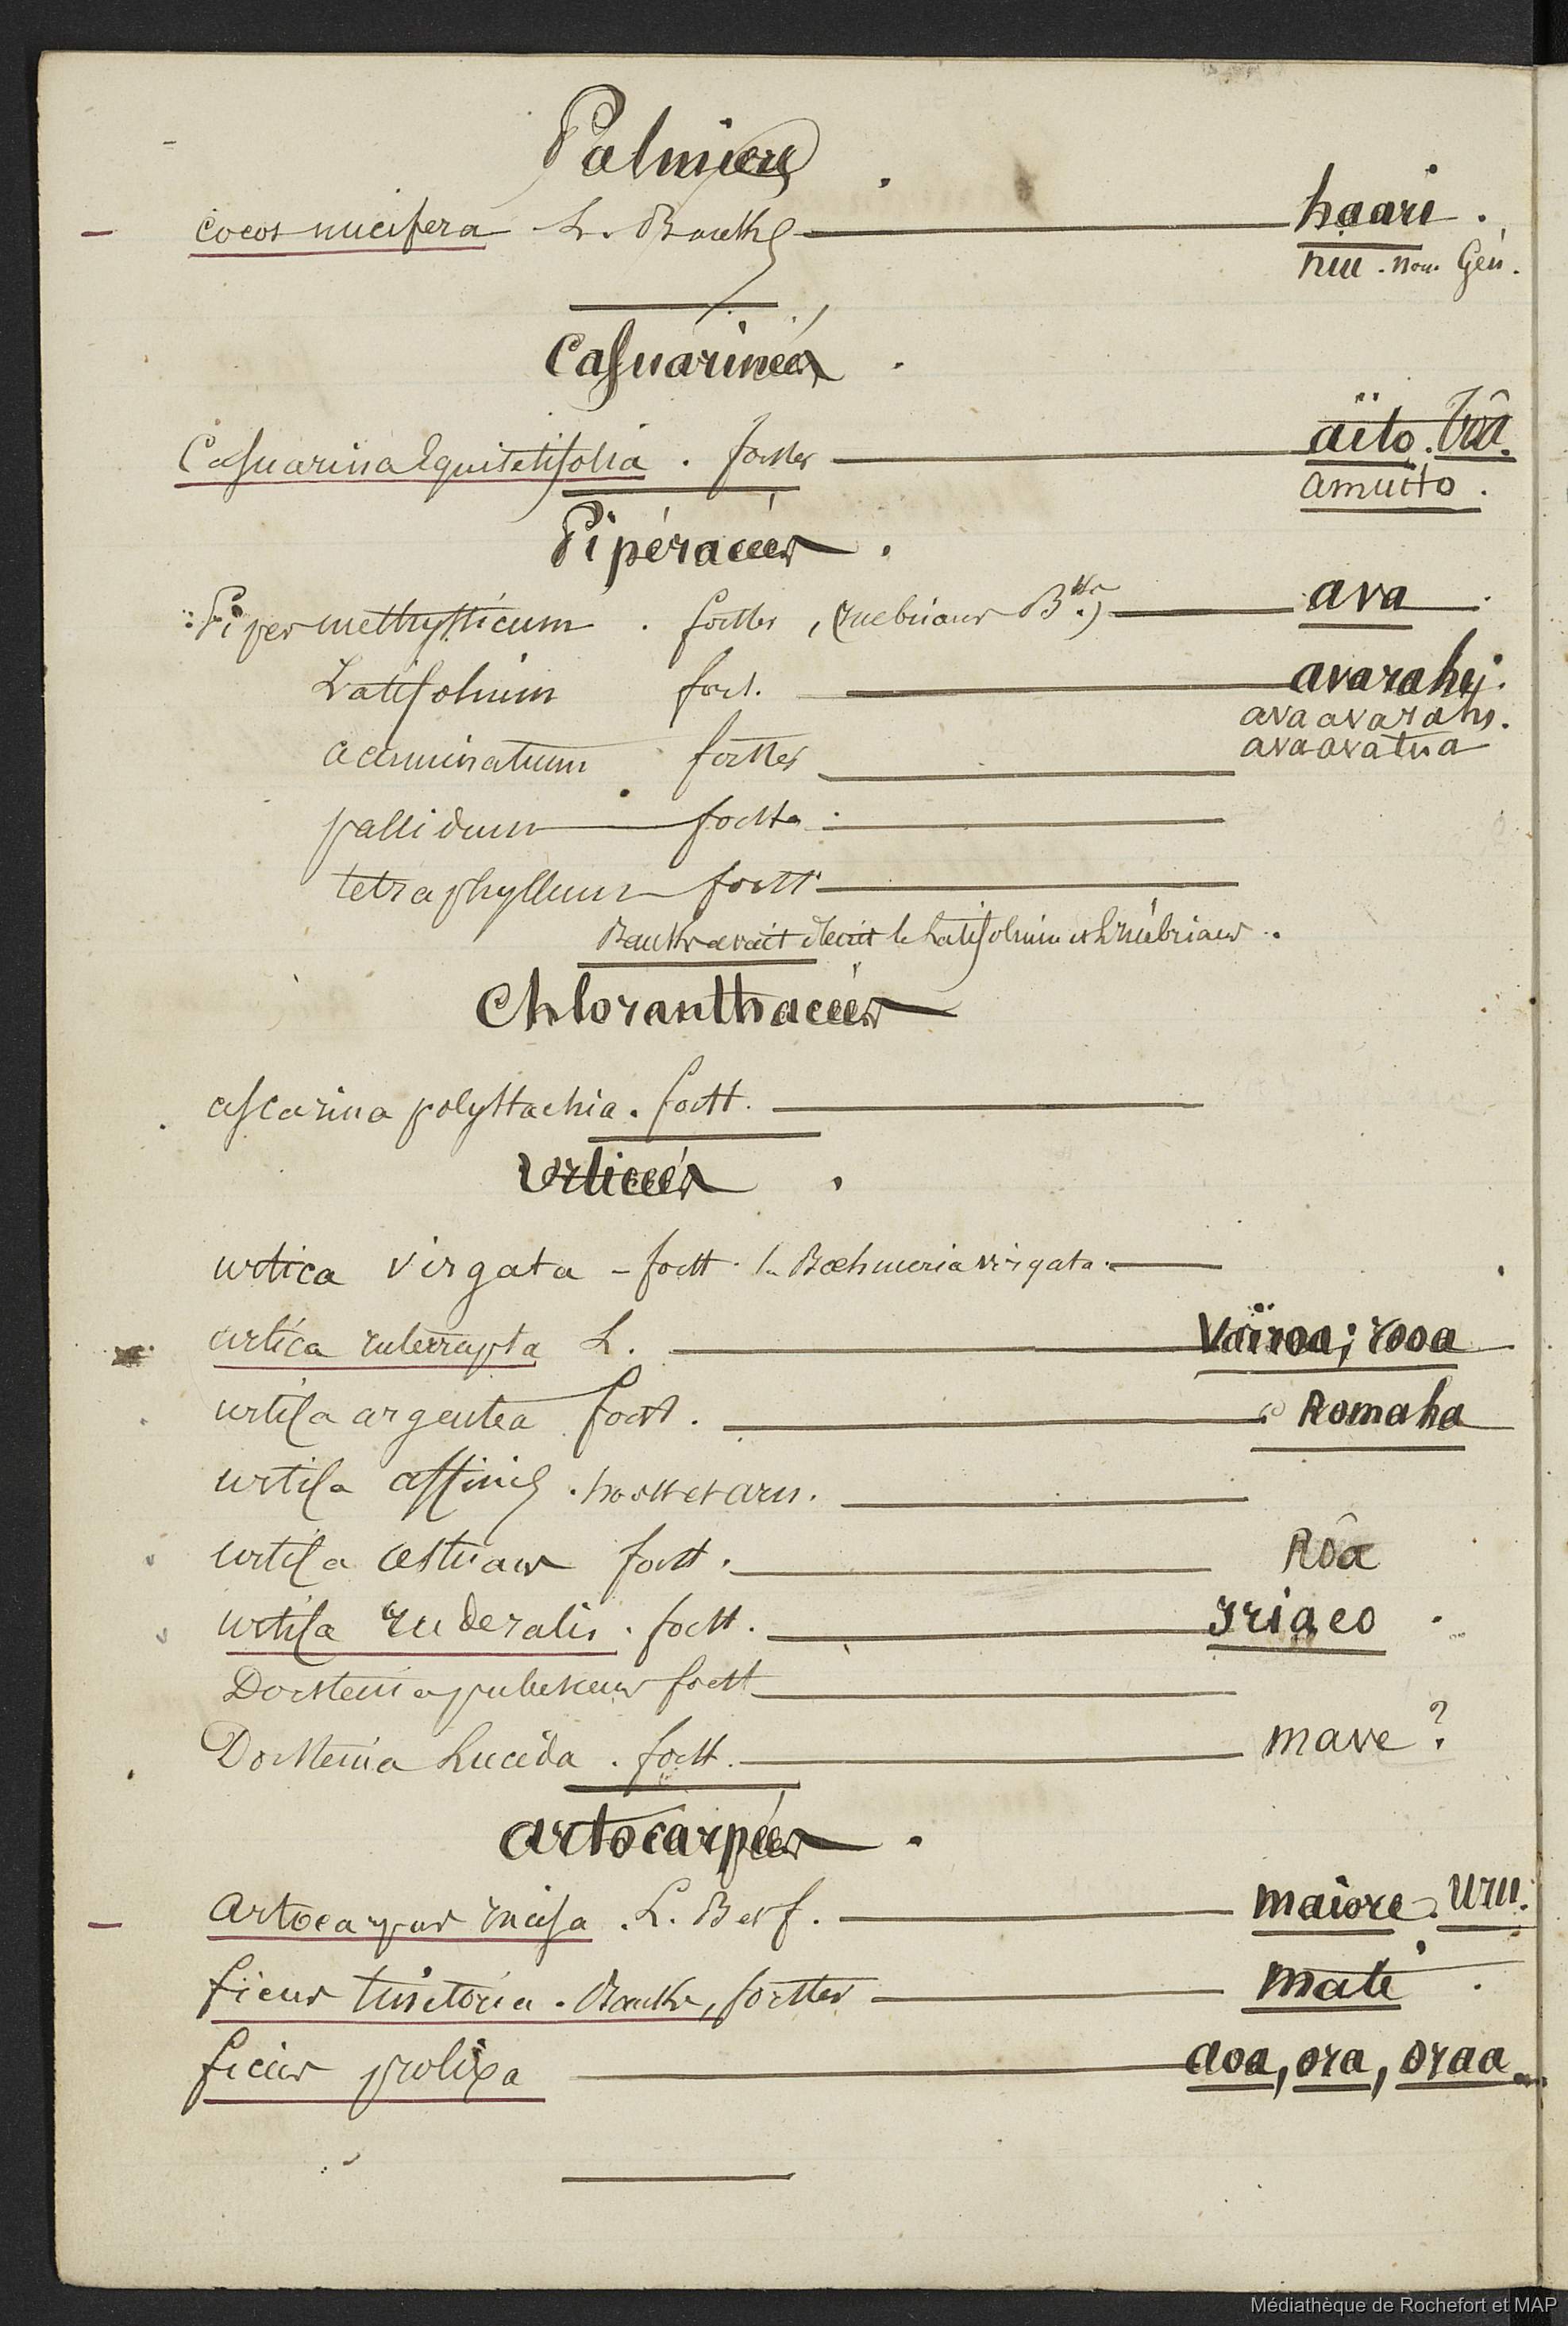 Palmiers.
cocos nucifera L. Banks haari.
niu. nom Gén.
Casuarinées.
Casuarina Equisetifolia. forster aïto. Toâ.
amuito.
Pipéracées.
Piper methysticum. forster, (inebrians Bks.) ava
Latifolium forst. avarahi.
ava avarahi.
acuminatum forster avaavatua
pallidum forster
tetraphyllum forst
Banks avait décrit le Latifolium et L'inébrians.
Chloranthacées
ascarina polystachia. forst.
Urticées.
urtica virgata - forst. Boehmeria virgata.
urtica interrupta L. Vaïroa; rooa
urtica argentea forst. Romaha
urtica affinis. hook et arn.
urtica æstuans forst. Rôa
urtica ruderalis. forst. Iriaeo.
Dorstenia pubescens forst
Dorstenia Lucida. forst. mave?
artocarpées.
artocarpus incisa. L. Bert. maiore. Uru.
ficus tinctoria. Banks, forster mate.
ficus prolixa aoa, ora, oraa
Médiathèque de Rochefort et MAP